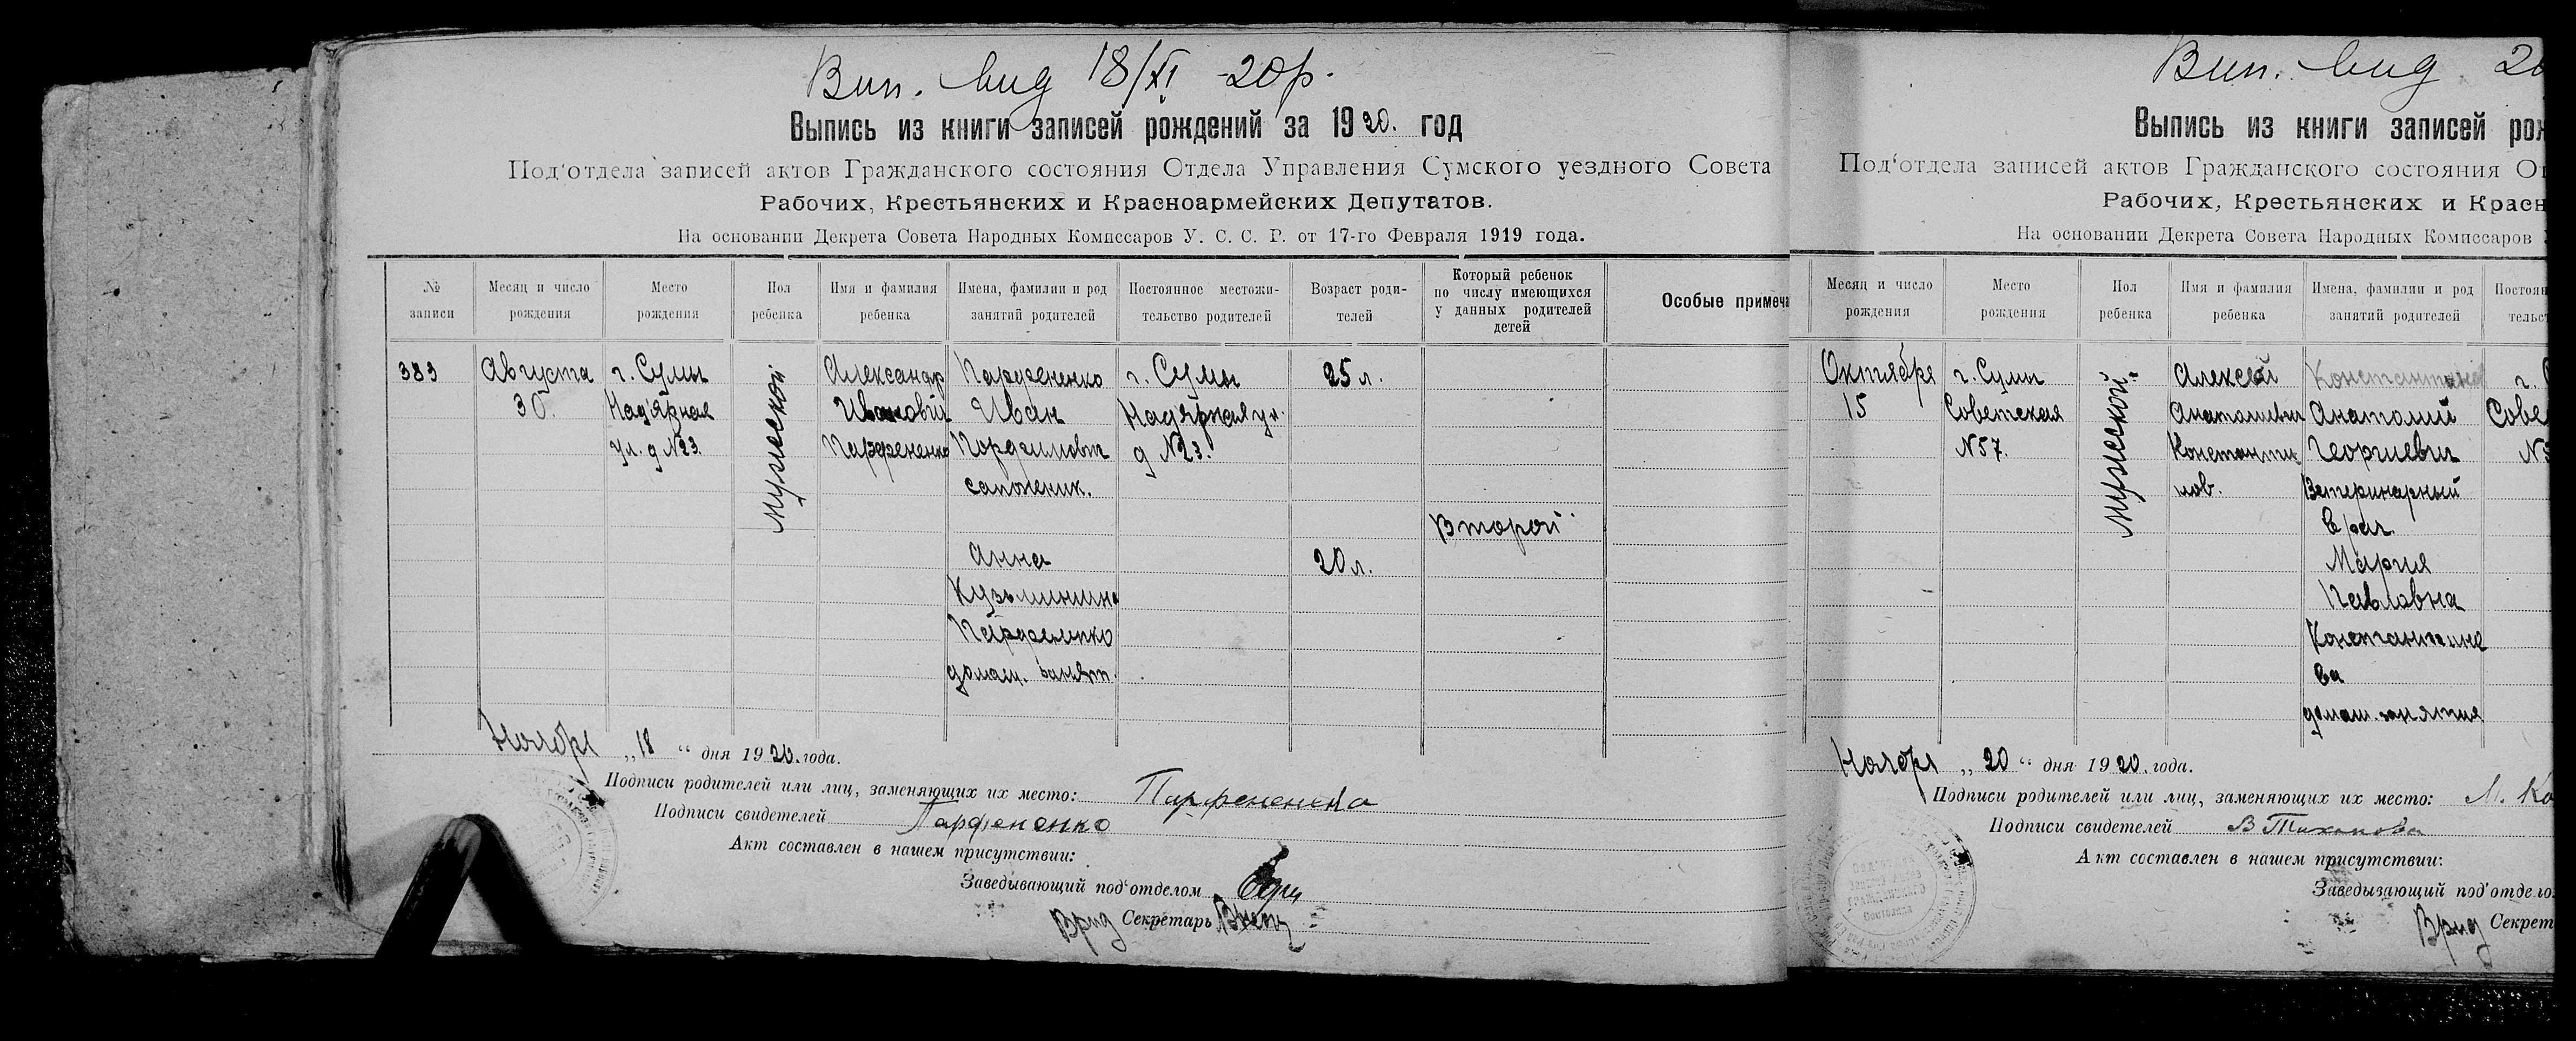 Вип. вид 18/XI -20р.
Выпись из книги записей рождений за 1920. год
Под'отдела записей актов Гражданского состояния Отдела Управления Сумского уездного Совета
Рабочих, Крестьянских и Красноармейских Депутатов.
На основании Декрета Совета Народных Комиссаров У. С. С. Р. от 17-го Февраля 1919 года.
№ записи
Месяц и число рождения
Место рождения
Пол ребенка
Имя и фамилия ребенка
Имена, фамилии и род занятий родителей
Постоянное местожи-
тельство родителей
Возраст роди-
телей
Который ребенок
по числу имеющихся
у данных родителей
детей
Особые примеча
383
Августа
30.
г. Сумы
Над'ярная
ул. д №23.
мужеской
Александр
Иванович
Парфененко
Парфененко
Иван
сапожник.
Анна
домаш. занят.
г. Сумы
Над'ярная ул.
д №23.
25 л.
20 л.
Второй
Ноября „18“ дня 1920.года.
Подписи родителей или лиц, заменяющих их место: Парфененко
Подписи свидетелей Парфененко
Акт составлен в нашем присутствии:
Заведывающий под'отделом
Врид Секретарь
Вип. вид 20
Выпись из книги записей рож
Под'отдела записей актов Гражданского состояния От
Рабочих, Крестьянских и Красн
На основании Декрета Совета Народных Комиссаров
Месяц и число рождения
Место рождения
Пол ребенка
Имя и фамилия ребенка
Имена, фамилии и род занятий родителей
Постоян
тельст
Октября
15
г. Сумы
Советская
№57.
мужеской.
Алексей
Анатолиевич
Константи
нов.
Константинов
Анатолий
Георгиевич
Ветеринарный
врач.
Мария
Павловна
Константино
ва
домаш. занятия
г.
Сове
№5
Ноября „20“ дня 1920.года.
Подписи родителей или лиц, заменяющих их место: М. Ко
Подписи свидетелей В Тихонова
Акт составлен в нашем присутствии:
Заведывающий под'отдело
Врид Секрет